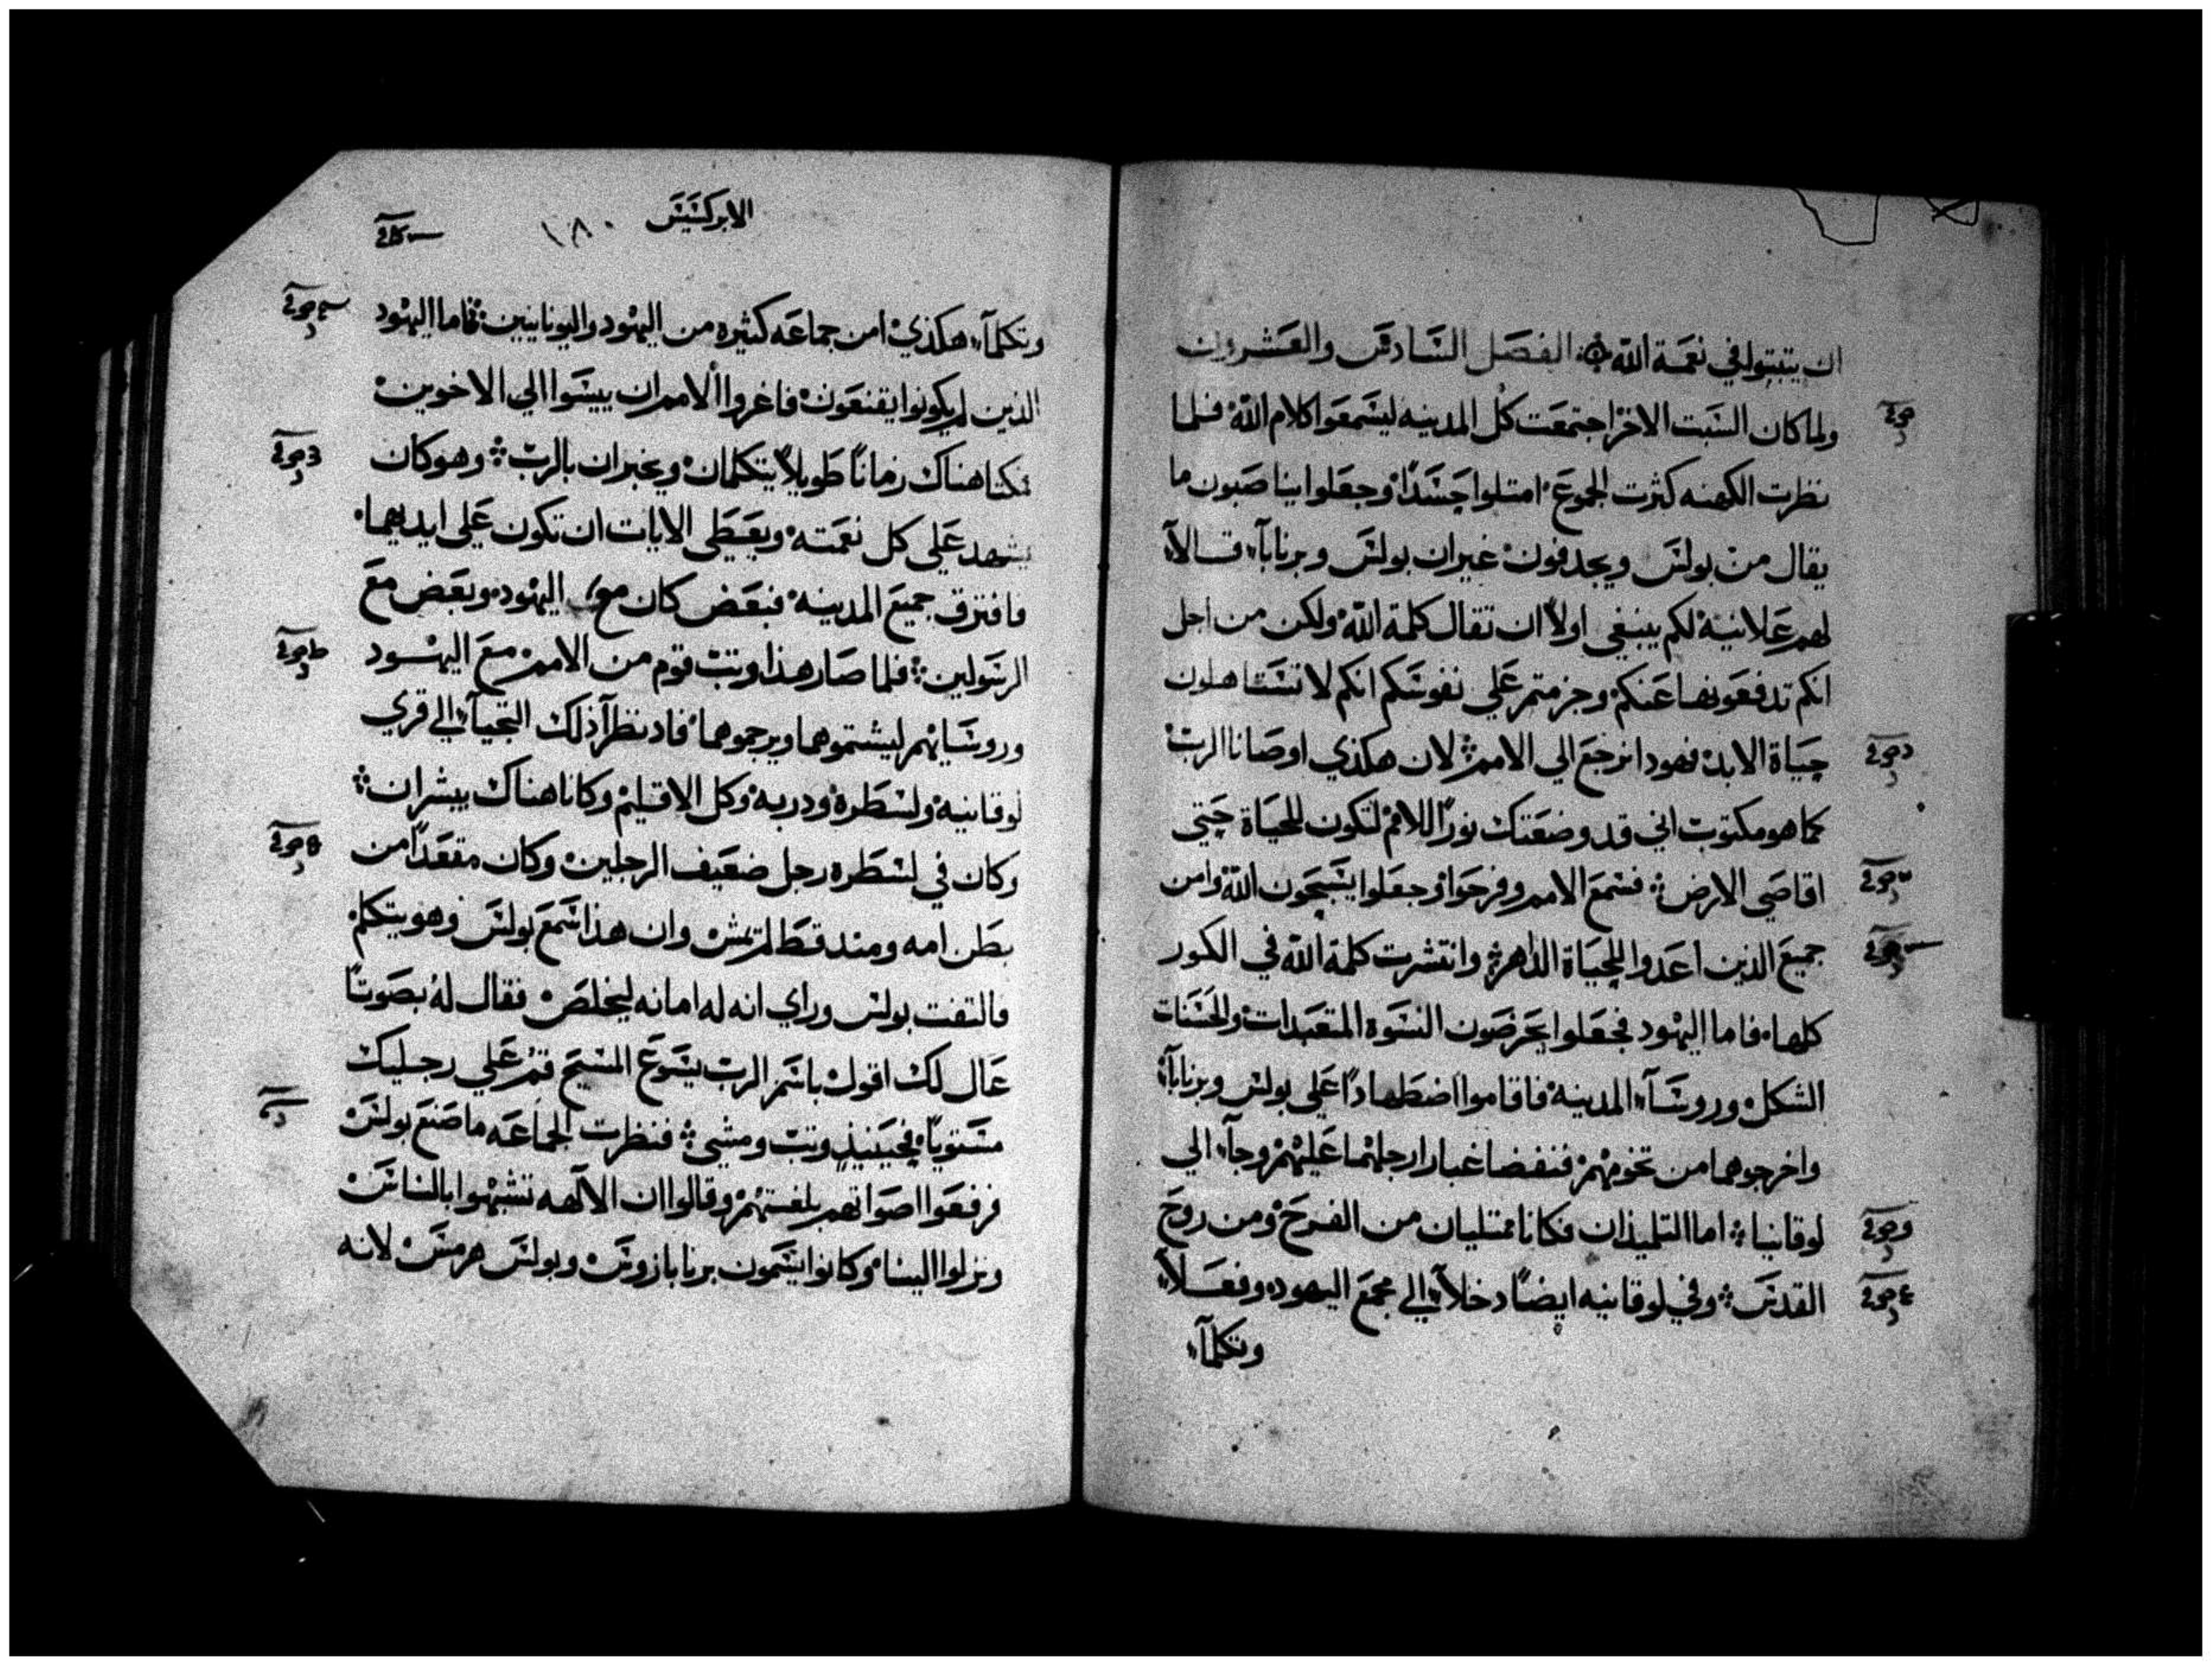 ان يتبتوا في نعمة الله ۞ الفصل السادس والعشرون
ولما كان السبت الاخر اجتمعت كل المدينه ليسمعوا كلام الله فلما
نظرت الكهنه كثرت الجموع امتلوا حسدًا وجعلوا يناصبون ما
يقال من بولس ويجدفون غير ان بولس وبرنابآء قالاآ
لهم علانية لكم ينبغي اولاً ان تقال كلمة الله ولكن من اجل
انكم تدفعونها عنكم وجزمتم علي نفوسكم انكم لا تستاهلون
حياة الابد فهودا نرجع الي الامم لان هكذي اوصانا الرب
كما هو مكتوب اني قد وضعتك نورًا للامم لتكون للحياة حتي
اقاصي الارض فسمع الامم وفرحوا وجعلوا يسبحون الله وامن
جميع الذين اعدوا للحياة الداهره وانتشرت كلمة الله في الكور
كلها فاما اليهود فجعلوا يحرضون النسوه المتعبدات والحسنات
الشكل وروسآء المدينه فاقاموا اضطهادًا علي بولس وبرنابآء
واخرجوهما من تخومهم فنفضا غبار ارجلهما عليهم وجآء الي
لوقانيا اما التلميذان فكانا ممتليان من الفرح ومن روح
القدس وفي لوقانيه ايضًا دخلآ الي مجمع اليهود وفعلآ
وتكلمآ
الابركسيس
١٨٠
وتكلمآ هكذي امن جماعه كثيره من اليهود واليونانيين فاما اليهود
الذين لم يكونوا يقنعون فاغروا الامم ان ييسوا الي الاخوين
فمكثا هناك زمانًا طويلاً يتكلمان ويخبران بالرب وهو كان
يشهد علي كل نعمته ويعطي الايات ان تكون علي ايديهما
فافترق جميع المدينه فبعض كان مع اليهود وبعض مع
الرسولين فلما صار هذا وتب قوم من الامم مع اليهود
وروسايهم ليشتموهما ويرجموهما فاد نظرآ ذلك التجيآ الي قري
لوقانيه ولسطره ودربه وكل الاقليم وكانا هناك يبشران
وكان في لسطره رجل ضعيف الرجلين وكان مقعدًا من
بطن امه ومند قط لم يمش وان هذا سمع بولس وهو يتكلم
فالتفت بولس وراي انه له امانه ليخلص فقال له بصوتًا
عال لك اقول باسم الرب يسوع المسيح قم علي رجليك
مستويًا فحينيذ وتب ومشي فنظرت الجماعه ما صنع بولس
فرفعوا اصواتهم بلغتهم وقالوا ان الالهه تشبهوا بالناس
ونزلوا الينا وكانوا يسمون برنابا زوس وبولس هرمس لانه